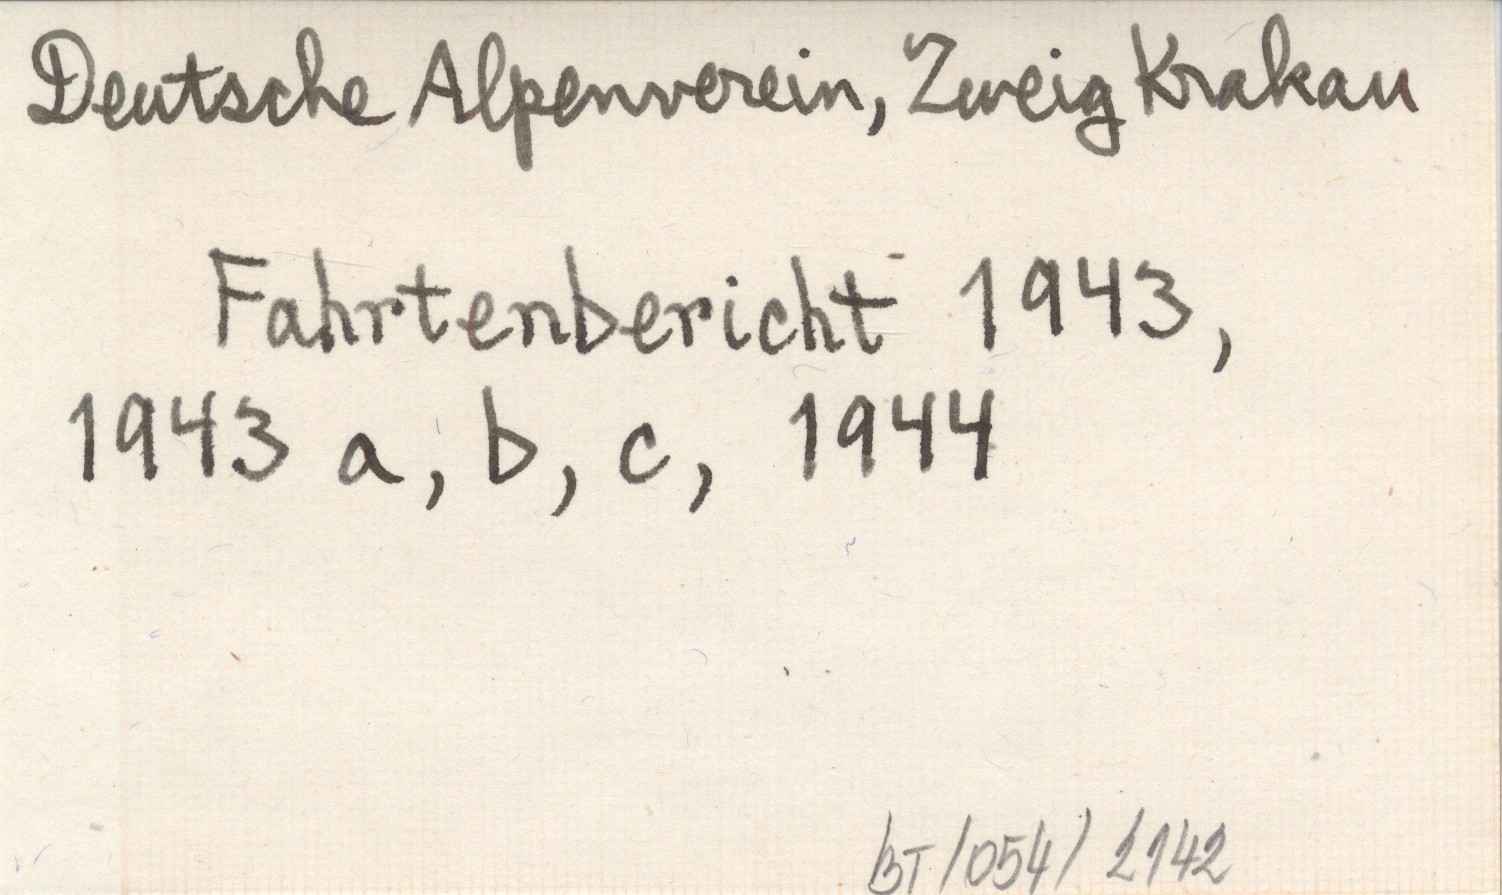 Deutsche Alpenverein, Zweig Krakau
Fahrtenbericht 1943,
1943 a, b, c, 1944
BT/054/2142